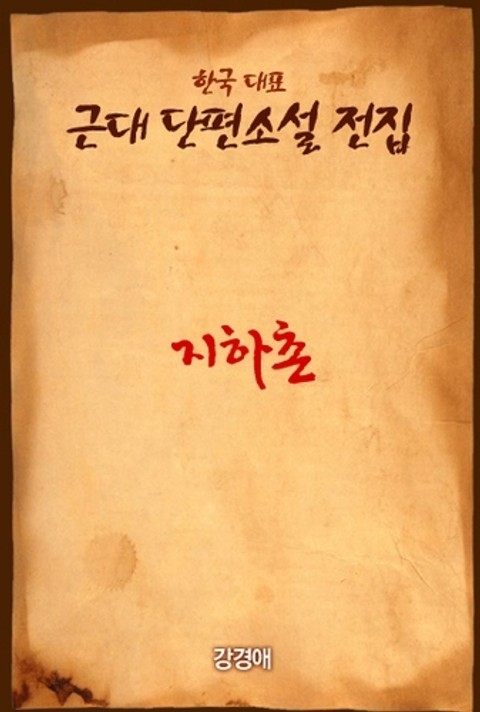 한국 대표
근대 단편소설 전집
지하촌
강경애